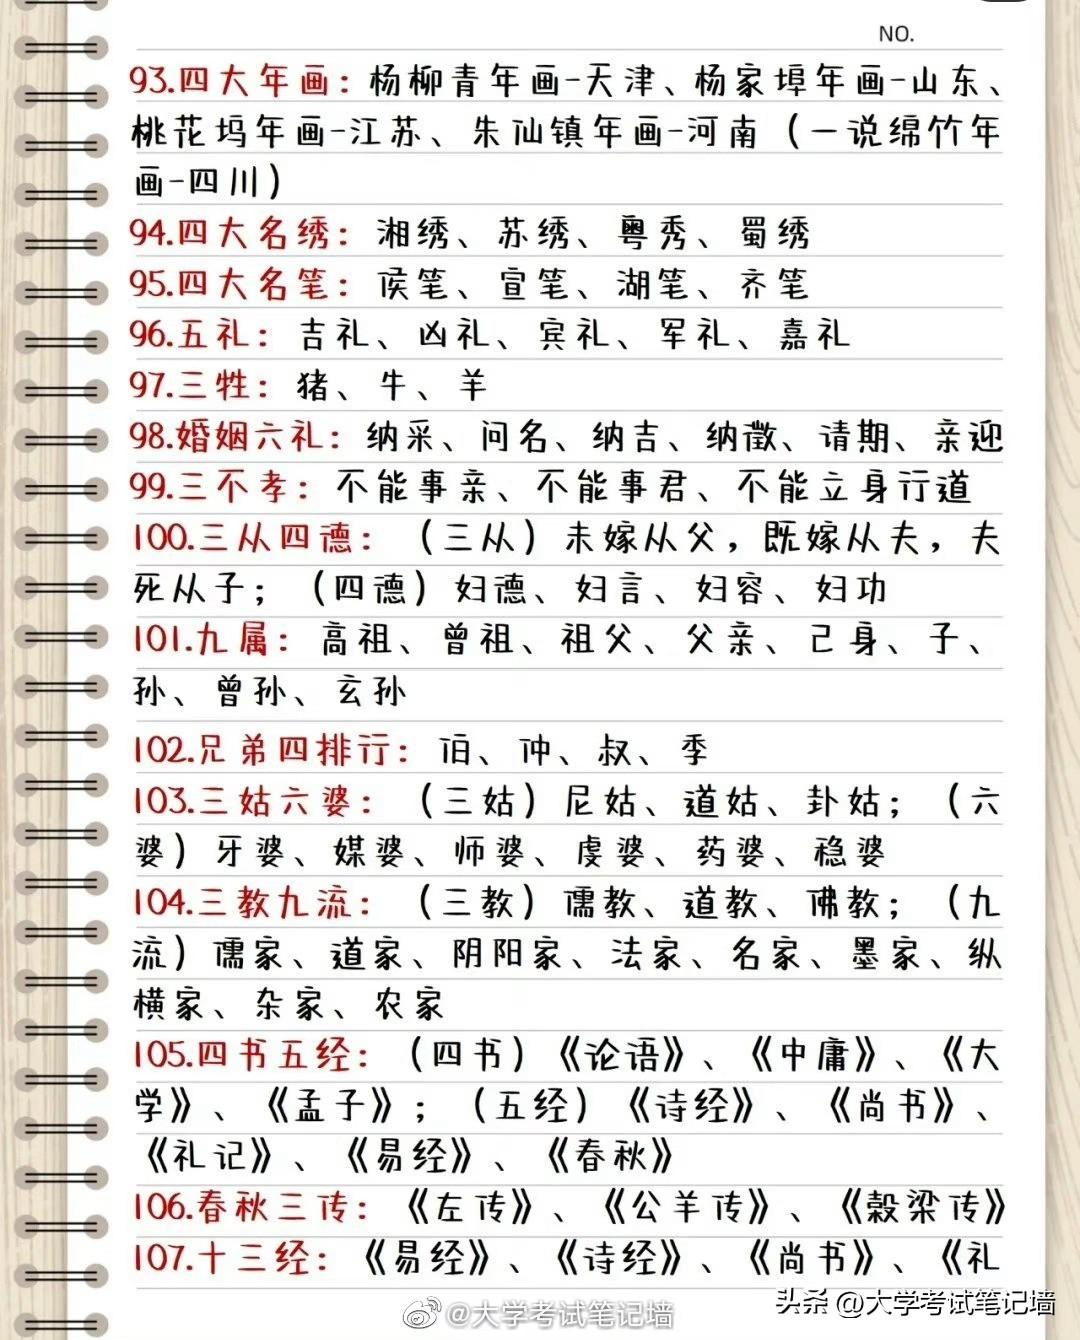 NO.
93.四大年画：杨柳青年画-天津、杨家埠年画-山东、
桃花坞年画-江苏、朱仙镇年画-河南（一说绵竹年
画-四川）
94.四大名绣：湘绣、苏绣、粤秀、蜀绣
95.四大名笔：侯笔、宣笔、湖笔、齐笔
96.五礼：吉礼、凶礼、宾礼、军礼、嘉礼
97.三牲：猪、牛、羊
98.婚姻六礼：纳采、问名、纳吉、纳徵、请期、亲迎
99.三不孝：不能事亲、不能事君、不能立身行道
100.三从四德：（三从）未嫁从父，既嫁从夫，夫
死从子；（四德）妇德、妇言、妇容、妇功
101.九属：高祖、曾祖、祖父、父亲、己身、子、
孙、曾孙、玄孙
102.兄弟四排行：伯、仲、叔、季
103.三姑六婆：（三姑）尼姑、道姑、卦姑；（六
婆）牙婆、媒婆、师婆、虔婆、药婆、稳婆
104.三教九流：（三教）儒教、道教、佛教；（九
流）儒家、道家、阴阳家、法家、名家、墨家、纵
横家、杂家、农家
105.四书五经：（四书）《论语》、《中庸》、《大
学》、《孟子》；（五经）《诗经》、《尚书》、
《礼记》、《易经》、《春秋》
106.春秋三传：《左传》、《公羊传》、《穀梁传》
107.十三经：《易经》、《诗经》、《尚书》、《礼
@大学考试笔记墙
头条 @大学考试笔记墙